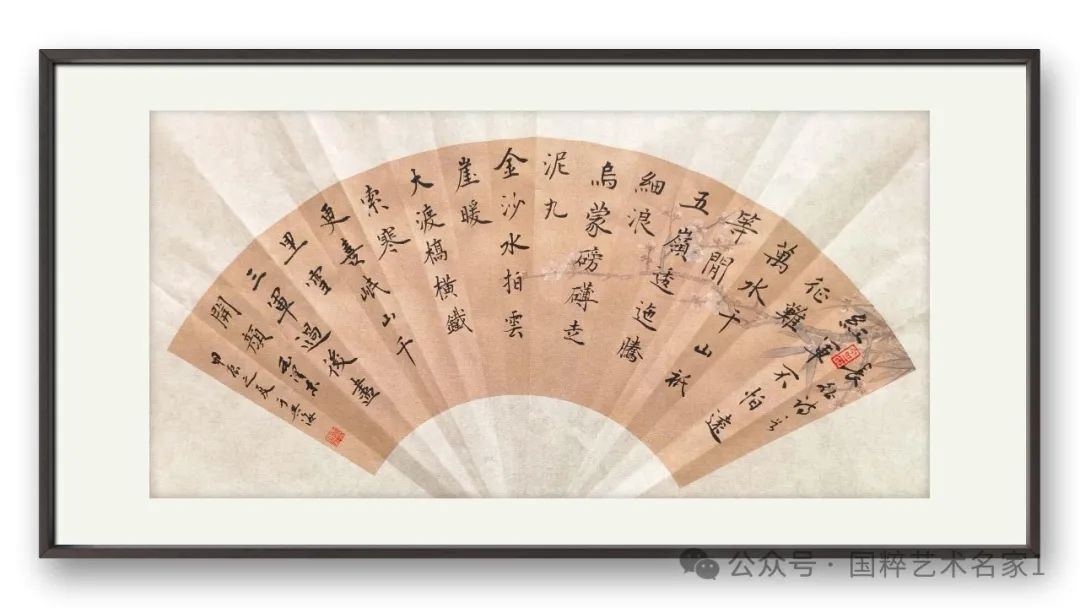 紅軍不怕遠
征難
萬水千山祇
等閒
五嶺逶迤騰
細浪
烏蒙磅礴走
泥丸
金沙水拍雲
崖暖
大渡橋橫鐵
索寒
更喜岷山千
里雪
三軍過後盡
開顏 毛澤東
甲辰之夏
公众号 · 国粹艺术名家1